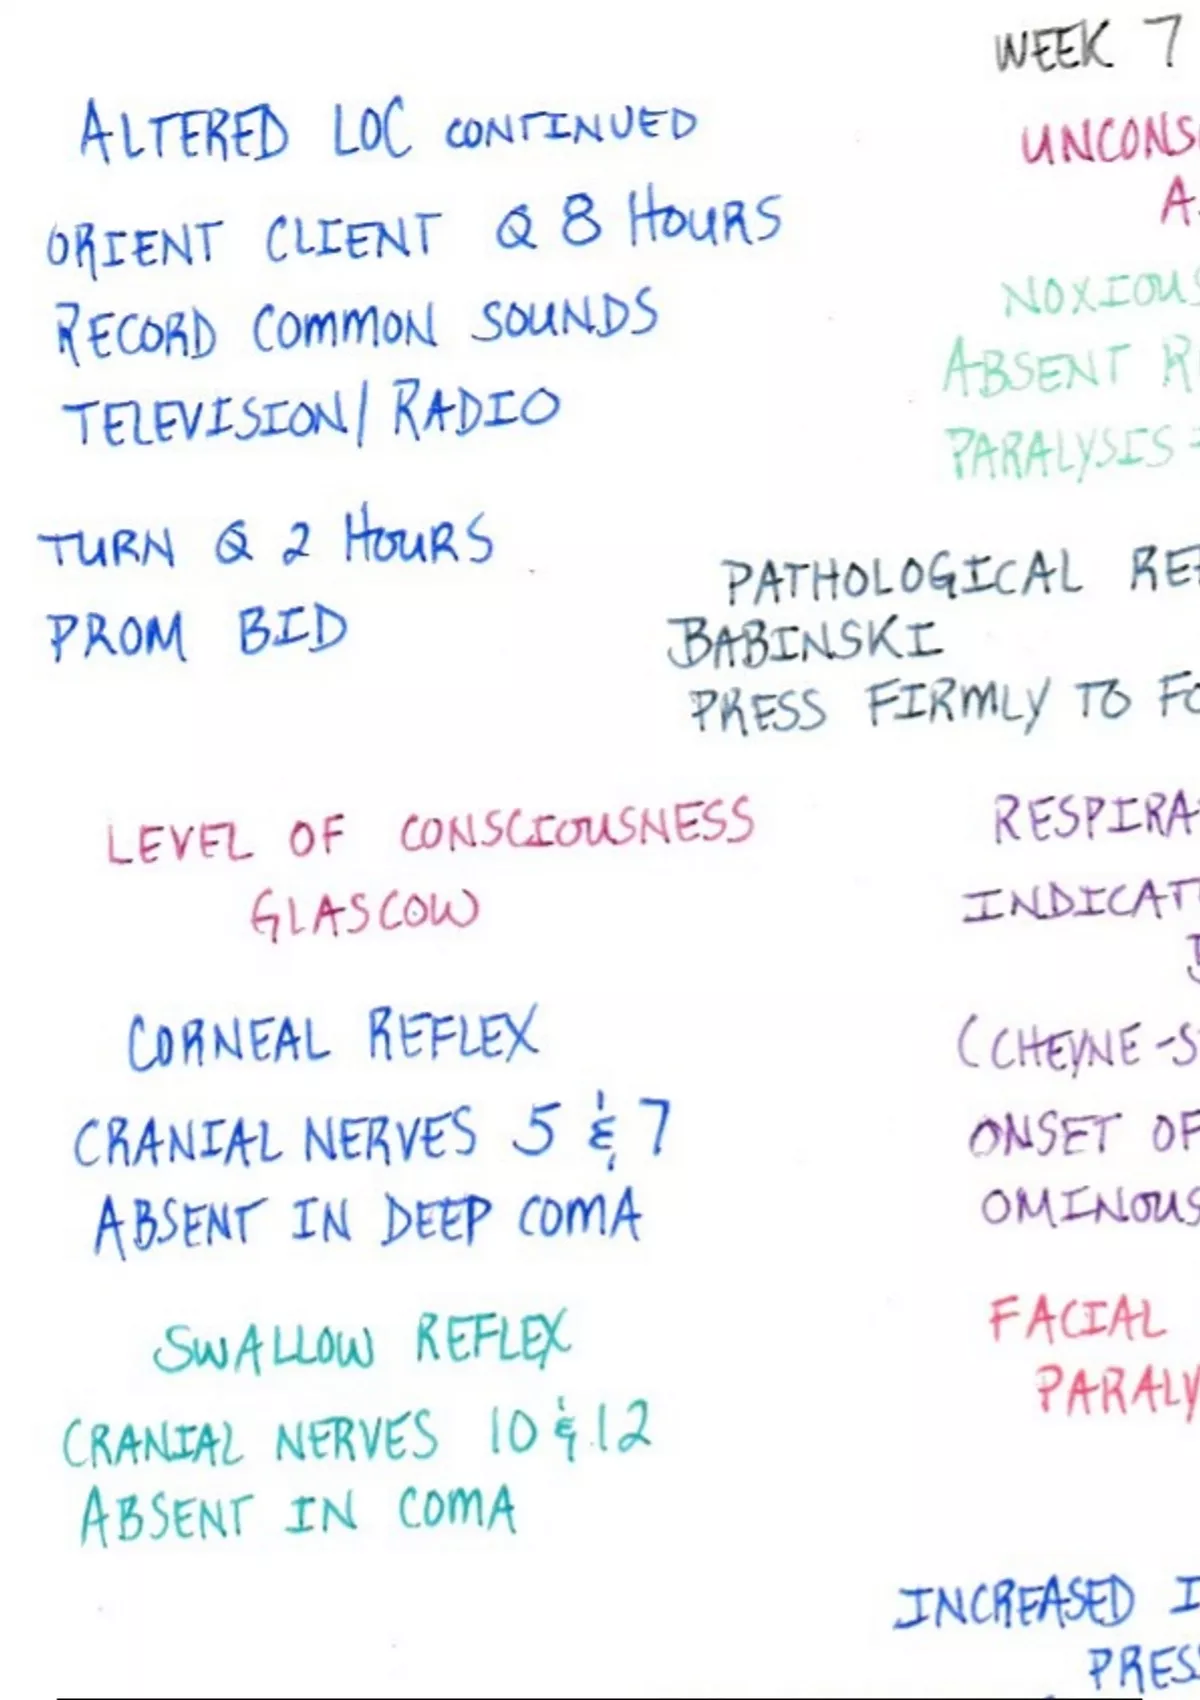 WEEK 7
ALTERED LOC CONTINUED
ORIENT CLIENT Q 8 HOURS
RECORD COMMON SOUNDS
TELEVISION/RADIO
TURN Q 2 HOURS
PROM BID
LEVEL OF CONSCIOUSNESS
GLASCOW
CORNEAL REFLEX
CRANIAL NERVES 5 & 7
ABSENT IN DEEP COMA
SWALLOW REFLEX
CRANIAL NERVES 10 & 12
ABSENT IN COMA
UNCONS
A
NOXIOUS
ABSENT R
PARALYSIS =
PATHOLOGICAL REF
BABINSKI
PRESS FIRMLY TO FO
RESPIRA
INDICAT
(CHEYNE-S
ONSET OF
OMINOUS
FACIAL
PARALY
INCREASED I
PRES